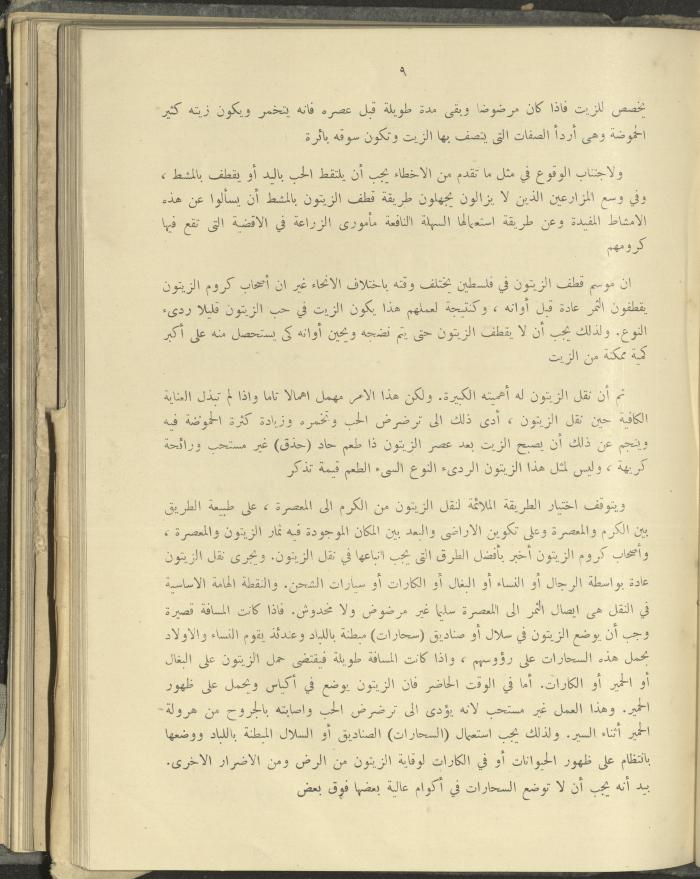 ٩
يخصص للزيت فاذا كان مرضوضا وبقى مدة طويلة قبل عصره فانه يتخمر ويكون زيته كثير
الحموضة وهى أردأ الصفات التى يتصف بها الزيت وتكون سوقه بائرة
ولاجتناب الوقوع في مثل ما تقدم من الاخطاء يجب أن يلتقط الحب باليد أو يقطف بالمشط ،
وفي وسع المزارعين الذين لا يزالون يجهلون طريقة قطف الزيتون بالمشط أن يسألوا عن هذه
الامشاط المفيدة وعن طريقة استعمالها السهلة النافعة مأمورى الزراعة في الاقضية التى تقع فيها
كرومهم
ان موسم قطف الزيتون في فلسطين يختلف وقته باختلاف الانحاء غير ان أصحاب كروم الزيتون
يقطفون الثمر عادة قبل أوانه ، وكنتيجة لعملهم هذا يكون الزيت في حب الزيتون قليلا ردىء
النوع. ولذلك يجب أن لا يقطف الزيتون حتى يتم نضجه ويحين أوانه كى يستحصل منه على أكبر
كمية ممكنة من الزيت
ثم أن نقل الزيتون له أهميته الكبيرة. ولكن هذا الامر مهمل اهمالا تاما واذا لم تبذل العناية
الكافية حين نقل الزيتون ، أدى ذلك الى ترضرض الحب وتخمره وزيادة كثرة الحموضة فيه
وينجم عن ذلك أن يصبح الزيت بعد عصر الزيتون ذا طعم حاد (حذق) غير مستحب ورائحة
كريهة ، وليس لمثل هذا الزيتون الردىء النوع السىء الطعم قيمة تذكر
ويتوقف اختيار الطريقة الملائمة لنقل الزيتون من الكرم الى المعصرة ، على طبيعة الطريق
بين الكرم والمعصرة وعلى تكوين الاراضى والبعد بين المكان الموجودة فيه ثمار الزيتون والمعصرة ،
وأصحاب كروم الزيتون أخبر بأفضل الطرق التى يجب اتباعها في نقل الزيتون. ويجرى نقل الزيتون
عادة بواسطة الرجال أو النساء أو البغال أو الكارات أو سيارات الشحن. والنقطة الهامة الاساسية
في النقل هى ايصال الثمر الى المعصرة سليما غير مرضوض ولا مخدوش. فاذا كانت المسافة قصيرة
وجب أن يوضع الزيتون في سلال أو صناديق (سحارات) مبطنة باللباد وعندئذ يقوم النساء والاولاد
بحمل هذه السحارات على رؤوسهم ، واذا كانت المسافة طويلة فيقتضى حمل الزيتون على البغال
أو الحمير أو الكارات. أما في الوقت الحاضر فان الزيتون يوضع في أكياس ويحمل على ظهور
الحمير. وهذا العمل غير مستحب لانه يؤدى الى ترضرض الحب واصابته بالجروح من هرولة
الحمير أثناء السير. ولذلك يجب استعمال (السحارات) الصناديق أو السلال المبطنة باللباد ووضعها
بانتظام على ظهور الحيوانات أو في الكارات لوقاية الزيتون من الرض ومن الاضرار الاخرى.
بيد أنه يجب أن لا توضع السحارات في أكوام عالية بعضها فوق بعض